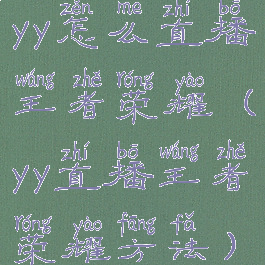 zěn me zhí bō
yy怎么直播
wáng zhě róng yào
王者荣耀(
zhí bō wáng zhě
yy直播王者
róng yào fāng fǎ
荣耀方法)